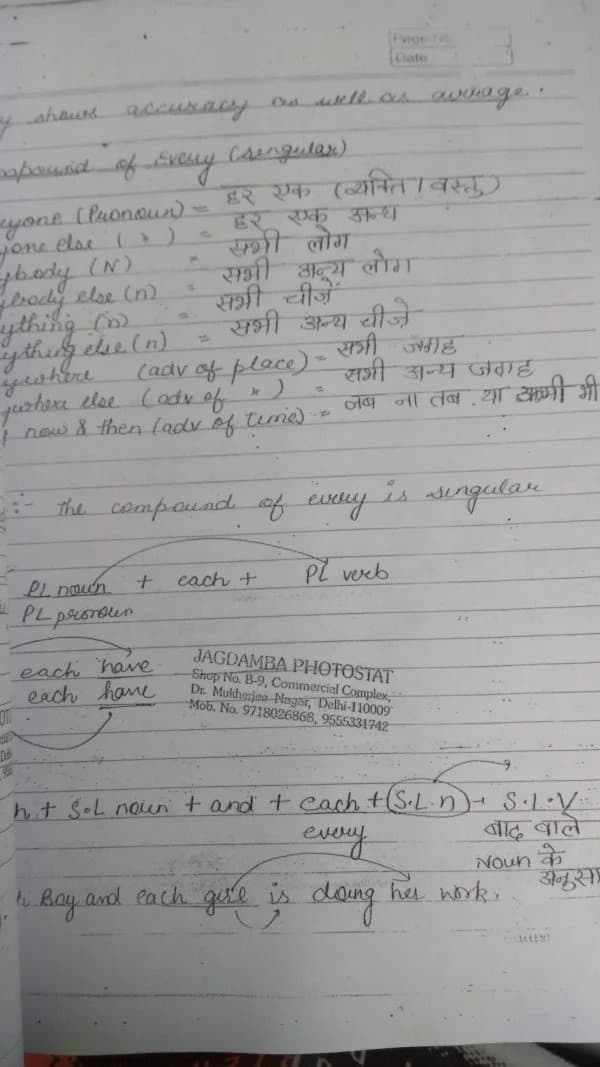 Page No.
Date
y shows accuracy as well as average.
mpound of Every (singular)
eyone (Pronoun) = हर एक (व्यक्ति / वस्तु)
yone else ( " ) = हर एक अन्य
ybody (N) = सभी लोग
ybody else (n) = सभी अन्य लोग
ything (n) = सभी चीजें
ything else (n) = सभी अन्य चीजे
ywhere (adv of place) = सभी जगह
ywhere else (adv of " ) = सभी अन्य जगह
now & then (adv of time) = जब ना तब या कभी भी
:- the compound of every is singular
PL noun + each + PL verb
PL pronoun
each have
each have
JAGDAMBA PHOTOSTAT
Shop No. B-9, Commercial Complex,
Dr. Mukherjee Nagar, Delhi-110009
Mob. No. 9718026868, 9555331742
h + S.L noun + and + each + (S.L.n) + S.L.V
every बाद वाले
Noun के
अनुसा
h Boy and each girl is doing her work.